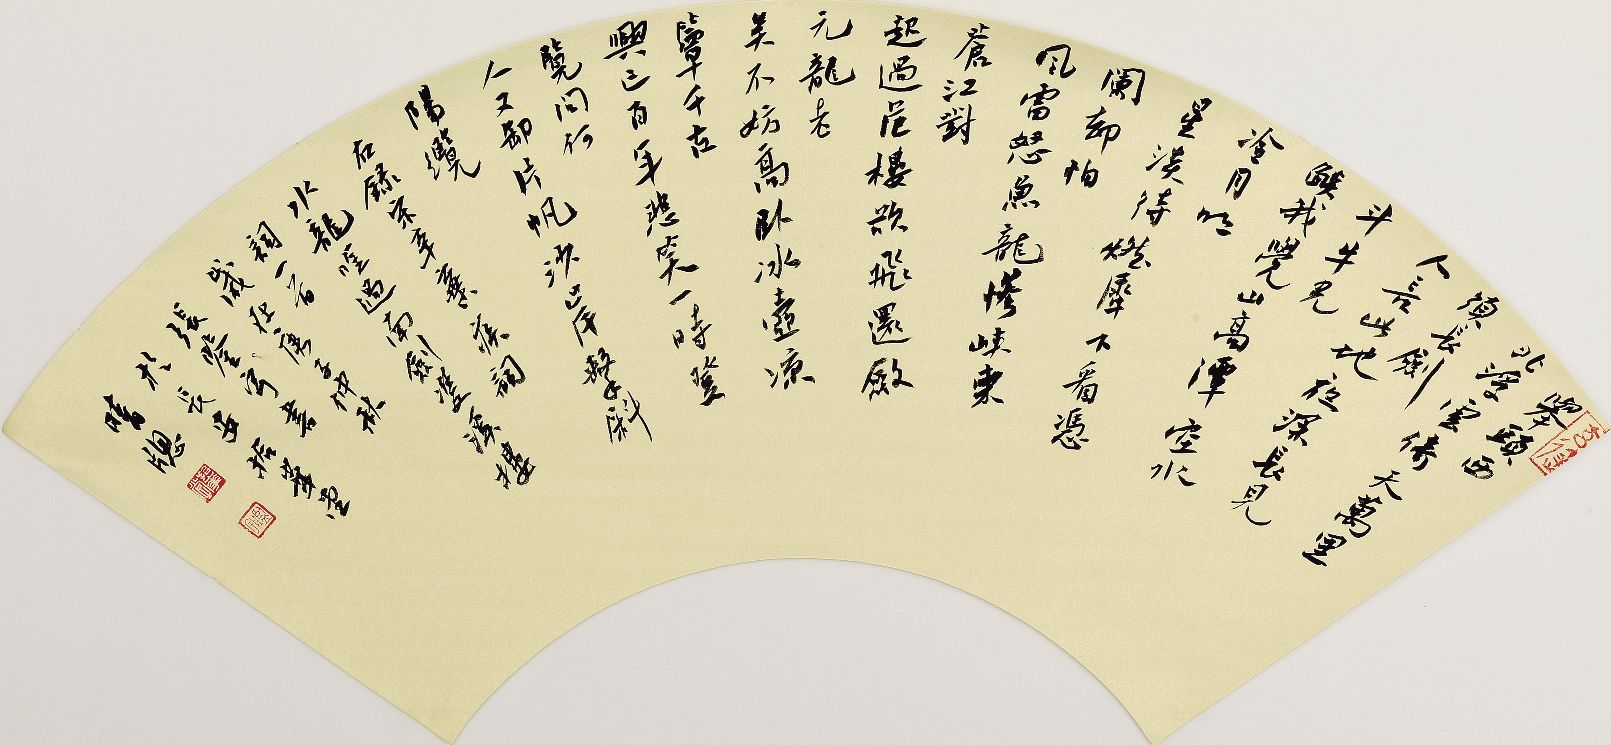 舉頭西
北浮雲倚天萬里
須長劍
人言此地夜深長見
斗牛光
燄我覺山高潭空水
冷月明
星淡待燃犀下看憑
闌卻怕
風雷怒魚龍慘峽束
蒼江對
起過危樓欲飛還斂
元龍老
矣不妨高臥冰壺涼
簟千古
興亡百年悲笑一時登
覽問何
人又卸片帆沙岸繫斜
陽纜
右錄宋辛棄疾詞
水龍唫過南劍雙溪樓
詞一首
歲在庚子仲秋
張寫書
於長安華堂
晴窗